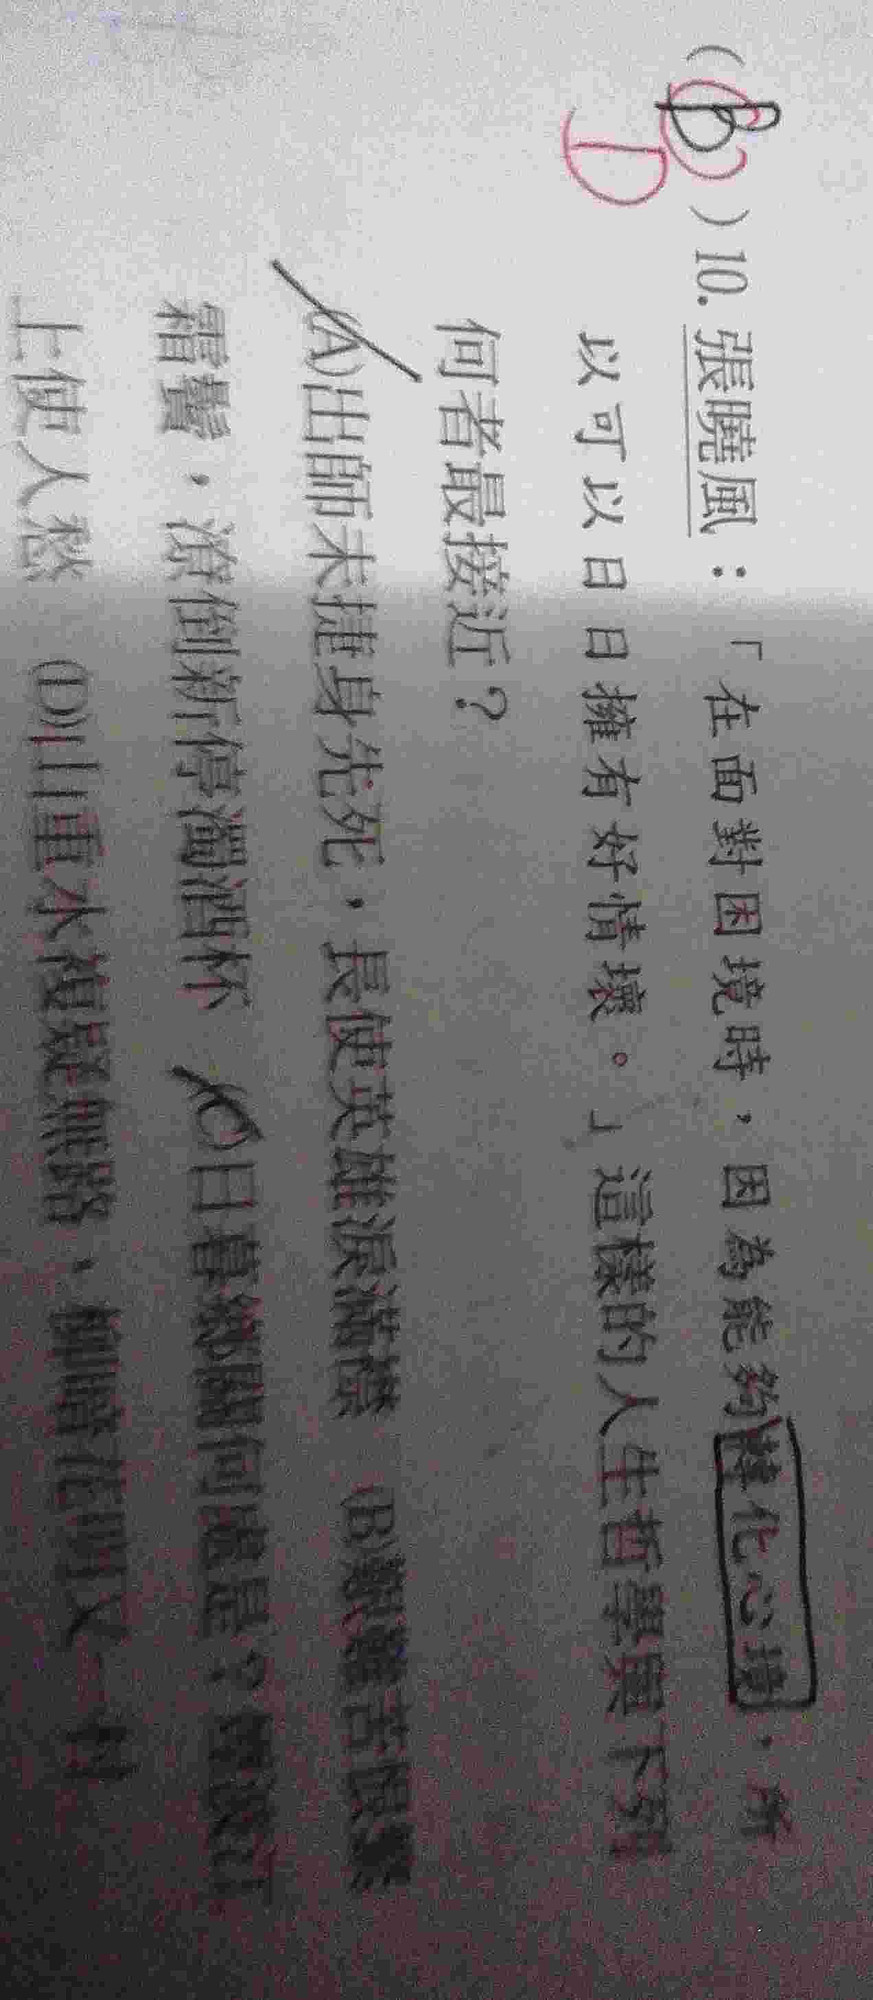 (B)10.張曉風:「在面對困境時,因為能夠轉化心境,所
D
以可以日日擁有好情壞。」這樣的人生哲學與下列
何者最接近?
(A)出師未捷身先死,長使英雄淚滿襟 (B)艱難苦恨繁
霜鬢,潦倒新停濁酒杯 (C)日暮鄉關何處是?煙波江
上使人愁 (D)山重水複疑無路,柳暗花明又一村